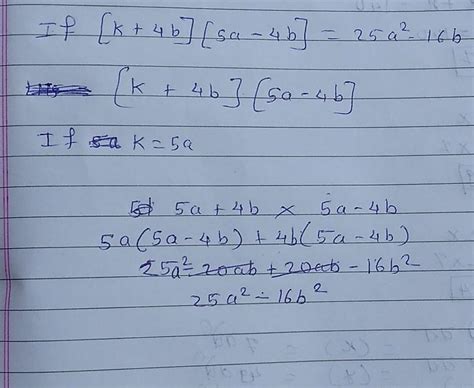 If [k + 4b] [5a - 4b] = 25a² - 16b
[k + 4b] [5a - 4b]
If 5a k = 5a
5a + 4b × 5a - 4b
5a(5a - 4b) + 4b(5a - 4b)
25a² - 20ab + 20ab - 16b²
25a² - 16b²